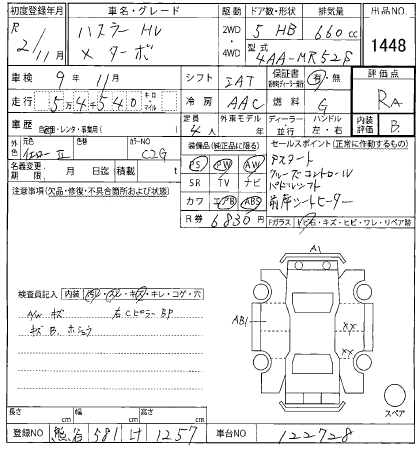 初度登録年月 車名・グレード 駆動 ドア数・形状 排気量 出品NO.
R 2/11月 ハスラー HV 2WD・4WD 5 HB 660cc 1448
X ターボ 型式 4AA-MR52S
車検 9年 11月 シフト IAT 保証書 有・無 評価点
走行 5万4千540 キロ マイル 冷房 AAC 燃料 G RA
車歴 自家用・レンタ・事業用( ) 定員 4人 外車モデル 年 ディーラー 並行 ハンドル 左・右 内装 B
外色 元色 イエローⅡ 色替 カラーNO C2G 装備品(純正品に限る) セールスポイント(正常に動作するもの)
名義変更期限 月 日迄 積載 t PS PW AW アスマート
注意事項(欠品・修復・不具合箇所および状態) SR TV ナビ クルーズコントロール
パドルシフト
カワ エアB ABS 前席シートヒーター
R券 6830円 Fガラス トビ石・キズ・ヒビ・ワレ・リペア跡
A1
検査員記入 内装 汚レ・スレ・キズ・キレ・コゲ・穴
AB1
A/W キズ 右Cピラー BP
キズ B. ホシュウ
XX
XX
スペア
長さ cm 幅 cm 高さ cm
登録NO 熊谷 581 け 1257 車台NO 122728